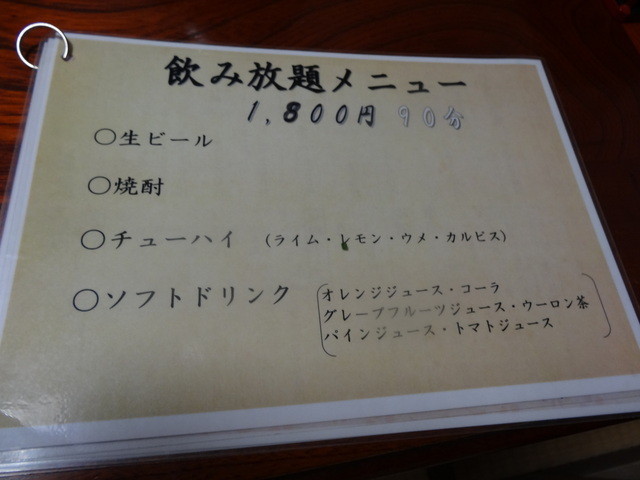 飲み放題メニュー
1,800円 90分
○生ビール
○焼酎
○チューハイ (ライム・レモン・ウメ・カルピス)
○ソフトドリンク
オレンジジュース・コーラ
グレープフルーツジュース・ウーロン茶
パインジュース・トマトジュース